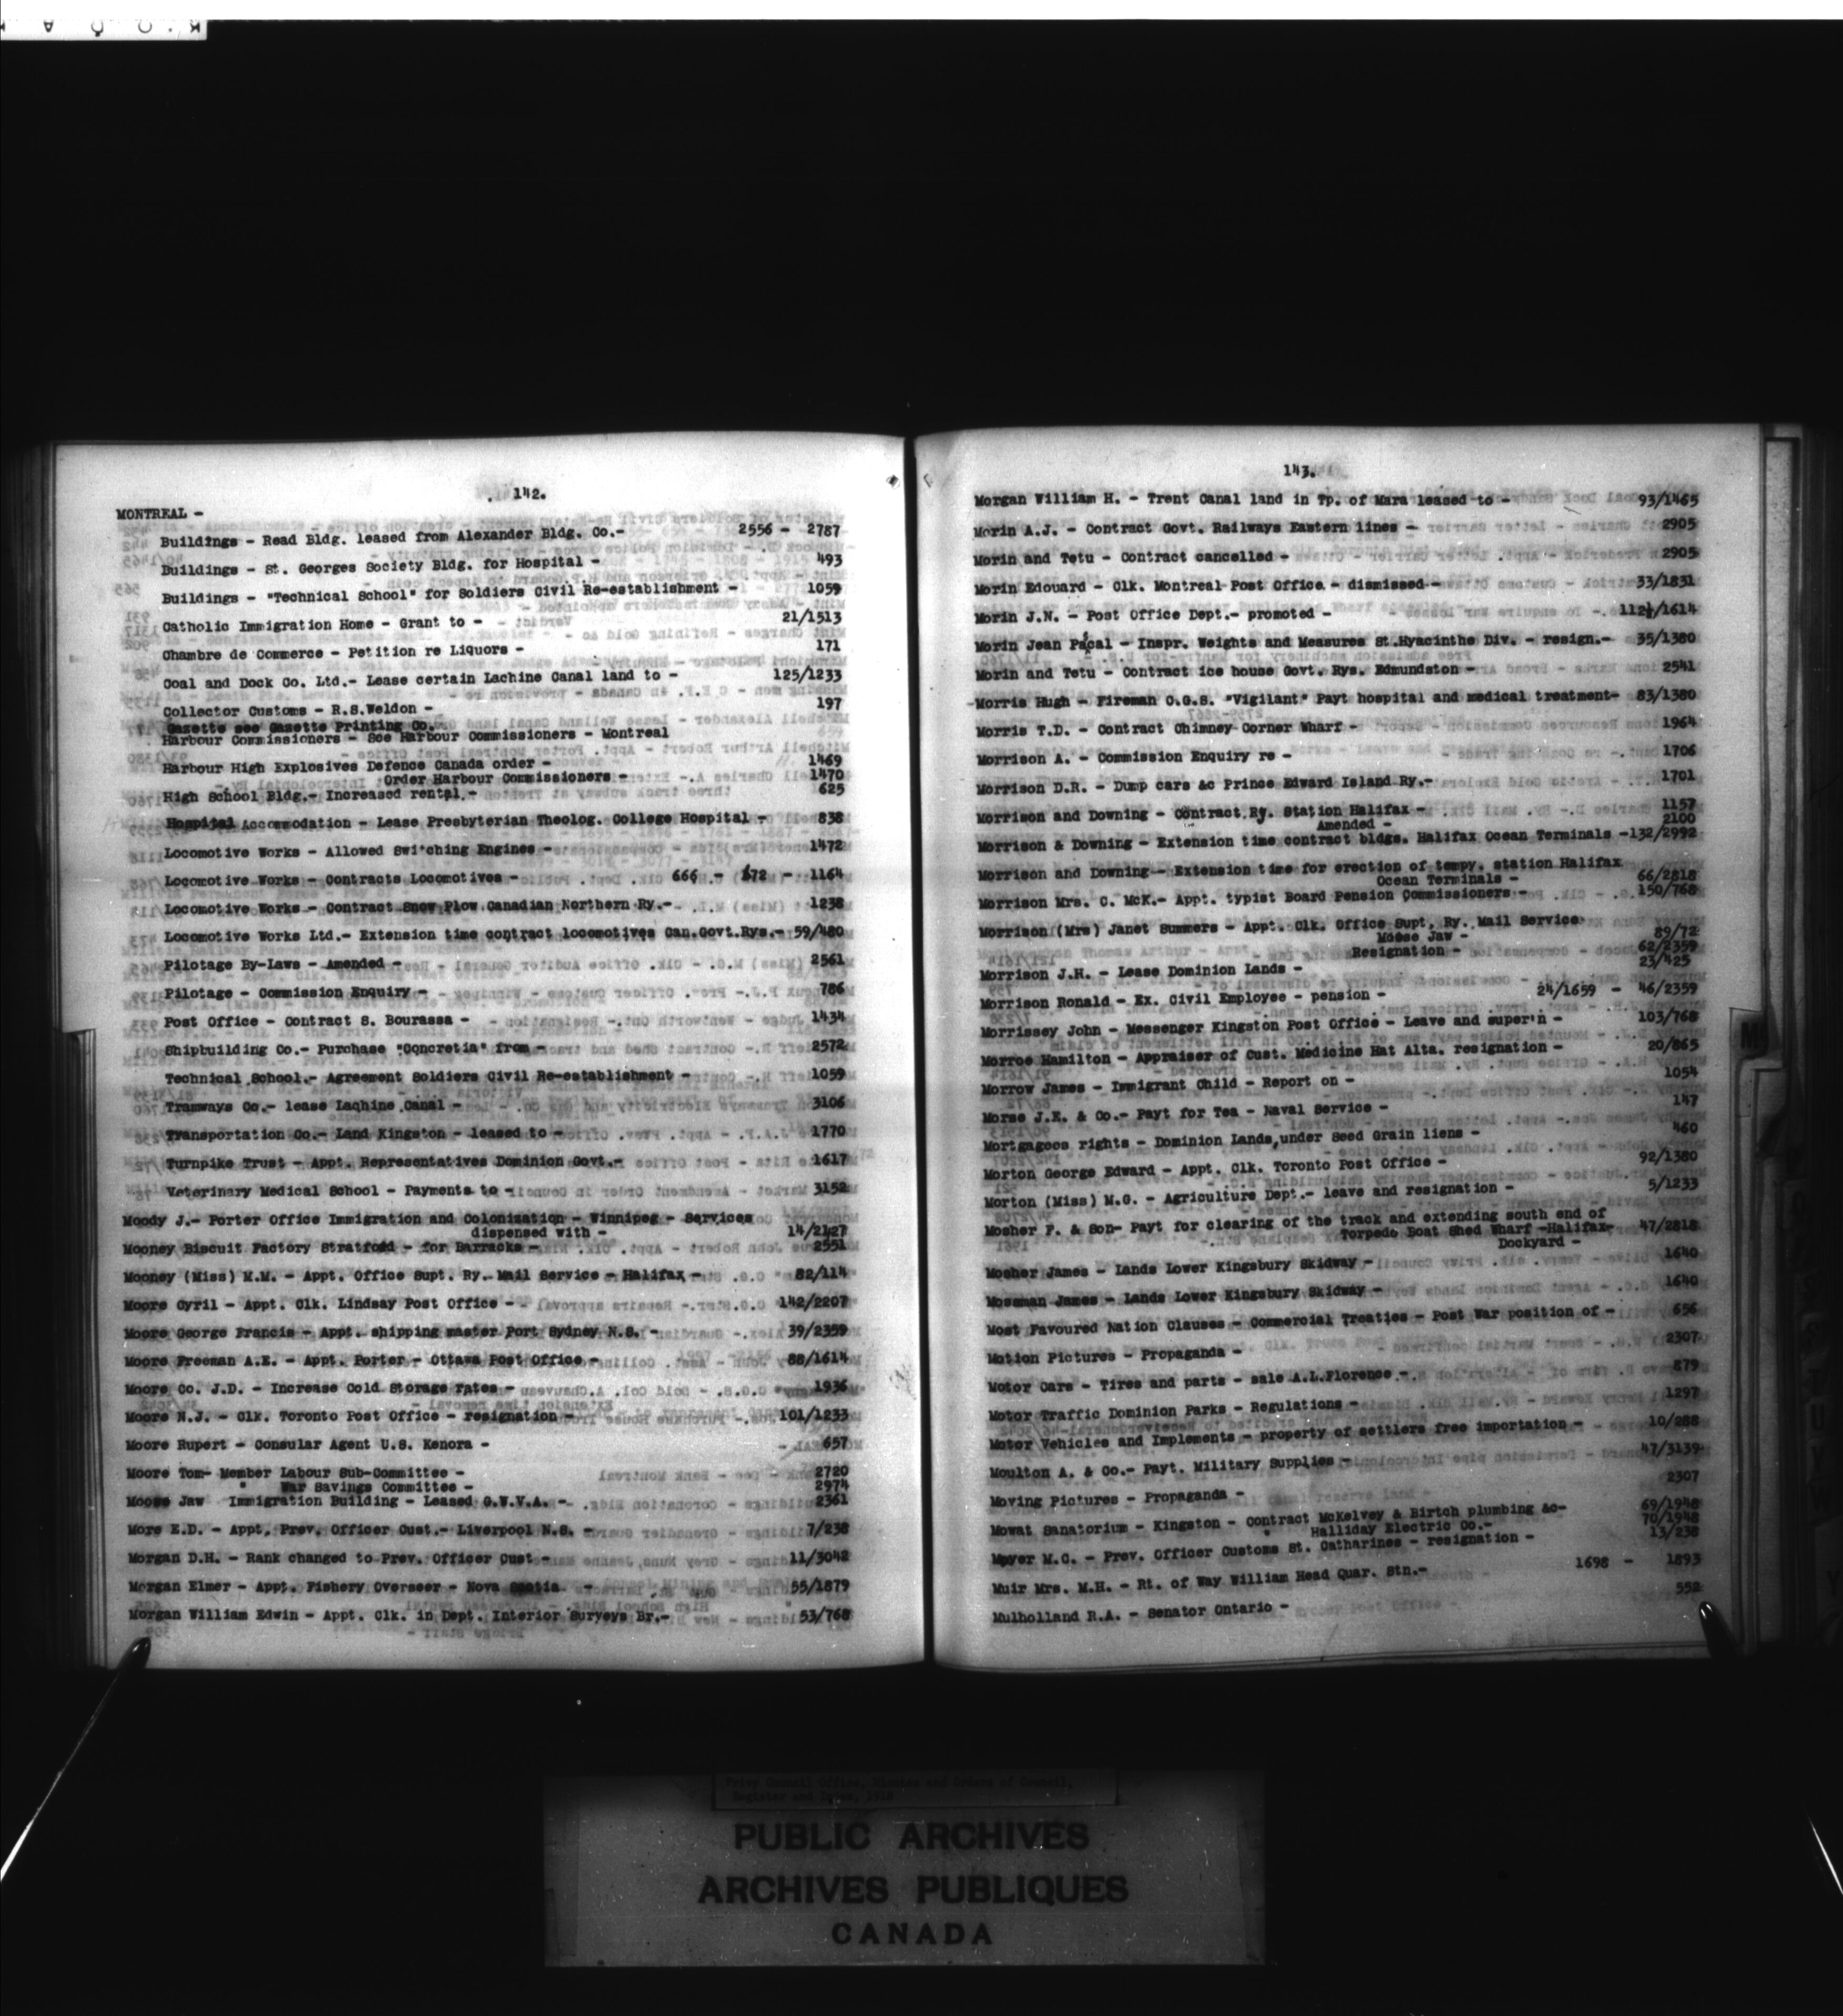 142.
MONTREAL -
Buildings - Read Bldg. leased from Alexander Bldg. Co.- 2556 - 2787
Buildings - St. Georges Society Bldg. for Hospital - 493
Buildings - "Technical School" for Soldiers Civil Re-establishment - 1059
Catholic Immigration Home - Grant to - 21/1513
Chambre de Commerce - Petition re Liquors - 171
Coal and Dock Co. Ltd.- Lease certain Lachine Canal land to - 125/1233
Collector Customs - R.S.Weldon - 197
Gazette see Gazette Printing Co.
Harbour Commissioners - See Harbour Commissioners - Montreal
Harbour High Explosives Defence Canada order - 1469
Order Harbour Commissioners - 1470
High School Bldg.- Increased rental - 625
Hospital Accommodation - Lease Presbyterian Theolog. College Hospital - 838
Locomotive Works - Allowed Switching Engines - 1472
Locomotive Works - Contracts Locomotives - 666 - 672 - 1164
Locomotive Works - Contract Snow Plow Canadian Northern Ry.- 1238
Locomotive Works Ltd.- Extension time contract locomotives Can.Govt.Rys.- 59/480
Pilotage By-Laws - Amended - 2561
Pilotage - Commission Enquiry - 786
Post Office - Contract S. Bourassa - 1434
Shipbuilding Co.- Purchase "Concretia" from - 2572
Technical School.- Agreement Soldiers Civil Re-establishment - 1059
Tramways Co.- lease Laqhine Canal - 3106
Transportation Co.- Land Kingston - leased to - 1770
Turnpike Trust - Appt. Representatives Dominion Govt.- 1617
Veterinary Medical School - Payments to - 3152
Moody J.- Porter Office Immigration and Colonization - Winnipeg - Services
dispensed with - 14/2127
Mooney Biscuit Factory Stratford - for Barracks - 2551
Mooney (Miss) M.M. - Appt. Office Supt. Ry. Mail Service - Halifax - 82/114
Moore Cyril - Appt. Clk. Lindsay Post Office - 142/2207
Moore George Francis - Appt. shipping master Port Sydney N.S. - 39/2359
Moore Freeman A.E. - Appt. Porter - Ottawa Post Office - 88/1614
Moore Co. J.D. - Increase Cold Storage rates - 1936
Moore N.J. - Clk. Toronto Post Office - resignation - 101/1233
Moore Rupert - Consular Agent U.S. Kenora - 657
Moore Tom- Member Labour Sub-Committee - 2720
" War Savings Committee - 2974
Moose Jaw Immigration Building - Leased G.W.V.A. - 2361
More E.D. - Appt. Prev. Officer Cust.- Liverpool N.S. - 7/238
Morgan D.H. - Rank changed to Prev. Officer Cust - 11/3042
Morgan Elmer - Appt. Fishery Overseer - Nova Scotia - 55/1879
Morgan William Edwin - Appt. Clk. in Dept. Interior Surveys Br.- 53/768
143.
Morgan William H. - Trent Canal land in Tp. of Mara leased to - 93/1465
Morin A.J. - Contract Govt. Railways Eastern lines - 2905
Morin and Tetu - Contract cancelled - 2905
Morin Edouard - Clk. Montreal Post Office - dismissed - 33/1831
Morin J.N. - Post Office Dept.- promoted - 112½/1614
Morin Jean Pascal - Inspr. Weights and Measures St.Hyacinthe Div. - resign.- 35/1380
Morin and Tetu - Contract ice house Govt. Rys. Edmundston - 2541
Morris Hugh - Fireman C.G.S. "Vigilant" Payt hospital and medical treatment- 83/1380
Morris T.D. - Contract Chimney Corner Wharf - 1964
Morrison A. - Commission Enquiry re - 1706
Morrison D.R. - Dump cars &c Prince Edward Island Ry.- 1701
Morrison and Downing - Contract Ry. Station Halifax - 1157
Amended - 2100
Morrison & Downing - Extension time contract bldgs. Halifax Ocean Terminals -132/2992
Morrison and Downing - Extension time for erection of tempy. station Halifax
Ocean Terminals - 66/2818
Morrison Mrs. C. McK.- Appt. typist Board Pension Commissioners - 150/768
Morrison (Mrs) Janet Summers - Appt. Clk. Office Supt. Ry. Mail Service
Moose Jaw - 89/72
Resignation - 62/2359
Morrison J.H. - Lease Dominion Lands - 23/425
Morrison Ronald - Ex. Civil Employee - pension - 24/1659 - 46/2359
Morrissey John - Messenger Kingston Post Office - Leave and super'n - 103/768
Morroe Hamilton - Appraiser of Cust. Medicine Hat Alta. resignation - 20/865
Morrow James - Immigrant Child - Report on - 1054
Morse J.E. & Co.- Payt for Tea - Naval Service - 147
Mortgagees rights - Dominion Lands,under Seed Grain liens - 460
Morton George Edward - Appt. Clk. Toronto Post Office - 92/1380
Morton (Miss) M.G. - Agriculture Dept.- leave and resignation - 5/1233
Mosher F. & Son- Payt for clearing of the track and extending south end of
Torpedo Boat Shed Wharf -Halifax- 47/2818
Dockyard -
Mosher James - Lands Lower Kingsbury Skidway - 1640
Mossman James - Lands Lower Kingsbury Skidway - 1640
Most Favoured Nation Clauses - Commercial Treaties - Post War position of - 656
Motion Pictures - Propaganda - 2307
Motor Cars - Tires and parts - sale A.L.Florence - 879
Motor Traffic Dominion Parks - Regulations - 1297
Motor Vehicles and Implements - property of settlers free importation - 10/288
Moulton A. & Co.- Payt. Military Supplies - 47/3139
Moving Pictures - Propaganda - 2307
Mowat Sanatorium - Kingston - Contract McKelvey & Birtch plumbing &c- 69/1948
" Halliday Electric Co.- 70/1948
Moyer M.C. - Prev. Officer Customs St. Catharines - resignation - 13/238
Muir Mrs. M.H. - Rt. of Way William Head Quar. Stn.- 1698 - 1893
Mulholland R.A. - Senator Ontario - 552
Privy Council Office, Minutes and Orders of Council,
Register and Index, 1918
PUBLIC ARCHIVES
ARCHIVES PUBLIQUES
CANADA